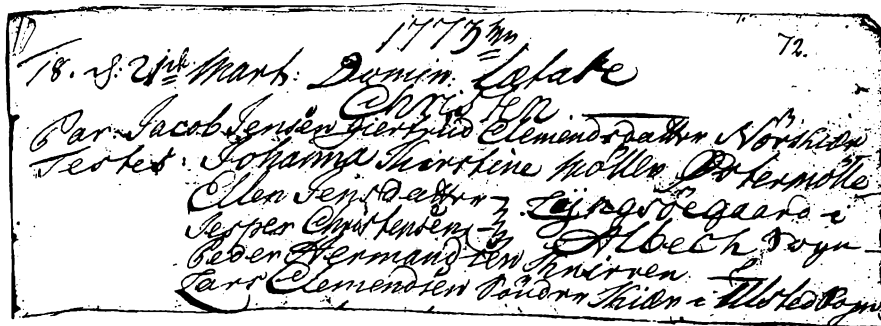 1773
72.
18. d: 21de Mart: Domin. Lætare
Christen
Par. Jacob Jensen Giertrud Clemendsdatter Nörkiær
Testes: Johanna Kirstine Möller Östermölle
Ellen Jensdatter Lÿngsöegaard i
Jesper Christensen Albech Sogn
Peder Hermandsen Knirren
Lars Clemendsen Sönder Kiær i Ulsted Sogn